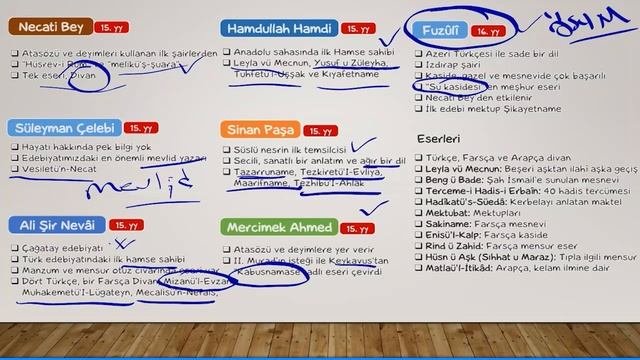 Necati Bey 15. yy
Atasözü ve deyimleri kullanan ilk şairlerden
"Hüsrev-i Rum" ve "melikü'ş-şuara"
Tek eseri, Divan
Süleyman Çelebi 15. yy
Hayatı hakkında pek bilgi yok
Edebiyatımızdaki en önemli mevlid yazarı
Vesiletü'n-Necat
mevlid
Ali Şir Nevâi 15. yy
Çağatay edebiyatı
Türk edebiyatındaki ilk hamse sahibi
Manzum ve mensur otuz civarında eseri var
Dört Türkçe, bir Farsça Divan, Mizanü'l-Evzan,
Muhakemetü'l-Lügateyn, Mecalisü'n-Nefais,
Hamdullah Hamdi 15. yy
Anadolu sahasında ilk Hamse sahibi
Leyla vü Mecnun, Yusuf u Züleyha,
Tuhfetü'l-Uşşak ve Kıyafetname
Sinan Paşa 15. yy
Süslü nesrin ilk temsilcisi
Secili, sanatlı bir anlatım ve ağır bir dil
Tazarruname, Tezkiretü'l-Evliya,
Maarifname, Tezhibu'l-Ahlak
Mercimek Ahmed 15. yy
Atasözü ve deyimlere yer verir
II. Murad'ın isteği ile Keykavus'tan
Kabusname adlı eseri çevirdi
Fuzûlî 16. yy
ÖSYM
Azeri Türkçesi ile sade bir dil
Izdırap şairi
Kaside, gazel ve mesnevide çok başarılı
"Su kasidesi" en meşhur eseri
Necati Bey'den etkilenir
İlk edebi mektup Şikayetname
Eserleri
Türkçe, Farsça ve Arapça divan
Leyla vü Mecnun: Beşeri aşktan ilahi aşka geçiş
Beng ü Bade: Şah İsmail'e sunulan mesnevi
Terceme-i Hadis-i Erbaîn: 40 hadis tercümesi
Hadîkatü's-Süedâ: Kerbelayı anlatan maktel
Mektubat: Mektupları
Sakiname: Farsça mesnevi
Enisü'l-Kalp: Farsça kaside
Rind ü Zahid: Farsça mensur eser
Hüsn ü Aşk (Sıhhat u Maraz): Tıpla ilgili mensur
Matlaü'l-İtikâd: Arapça, kelam ilmine dair